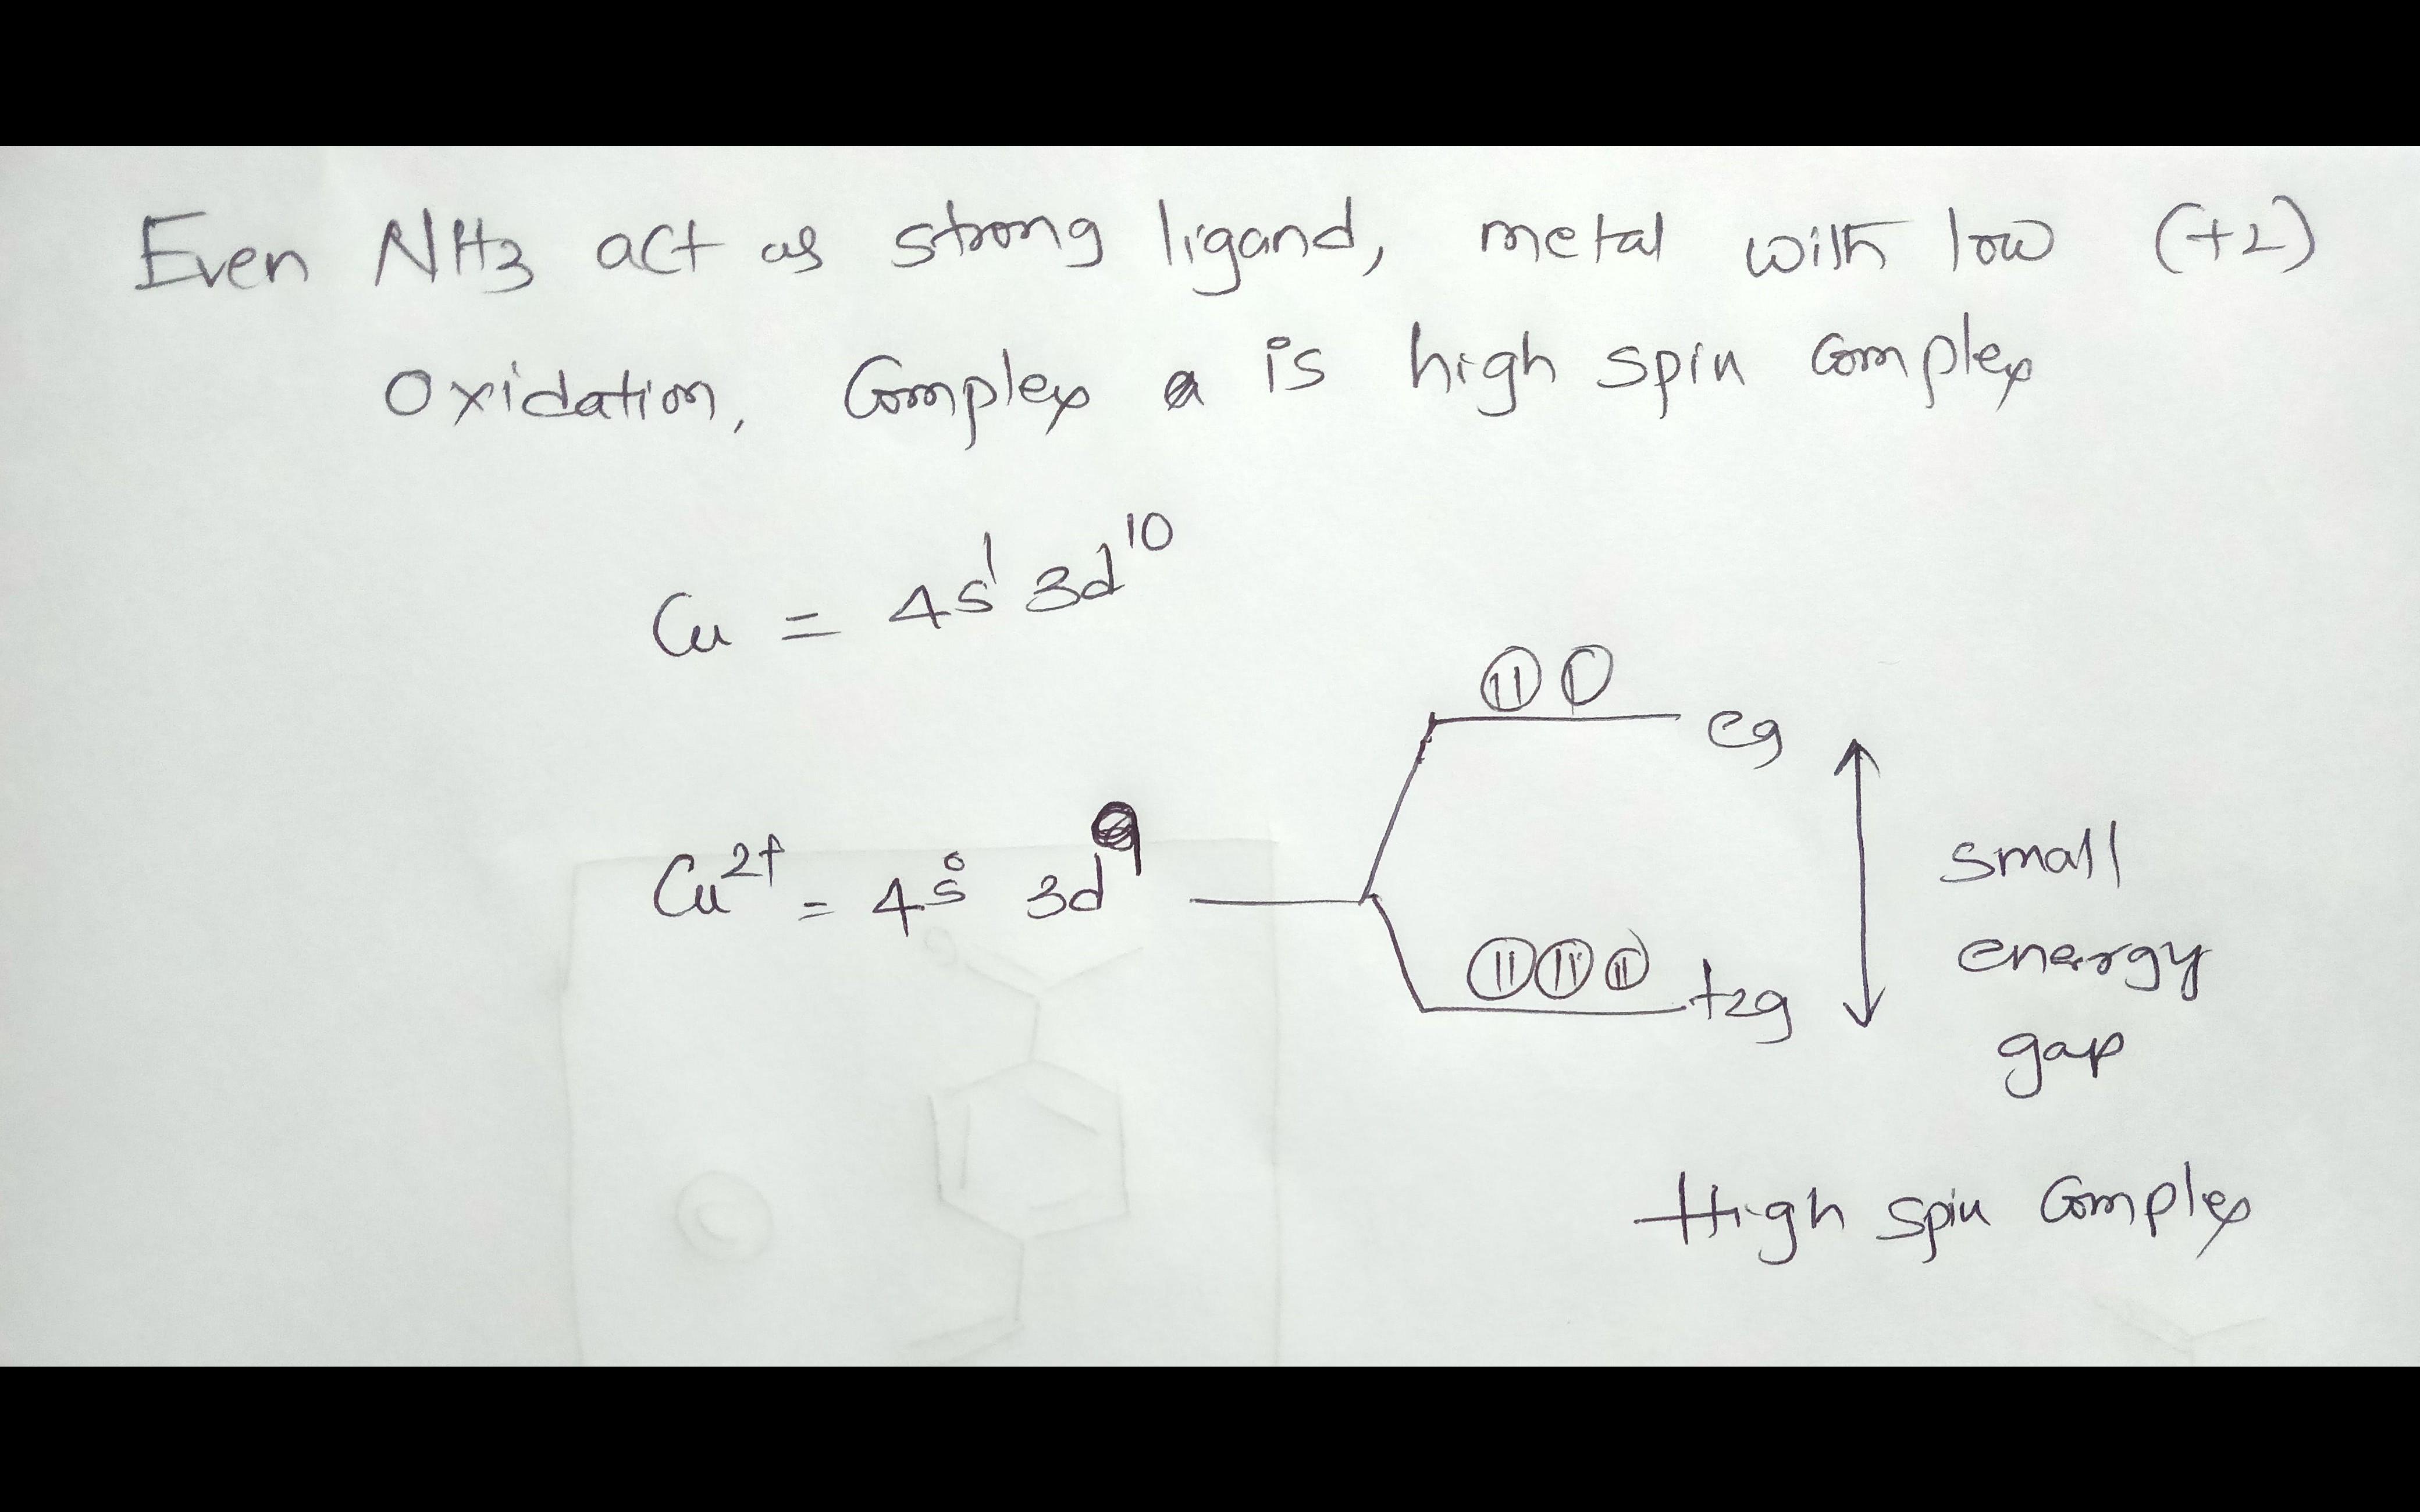 Even NH3 act as strong ligand, metal with low (+2)
Oxidation, Complex a is high spin complex
Cu = 4s1 3d10
eg
Cu2+ = 4s0 3d9
small
energy
gap
t2g
High spin Complex